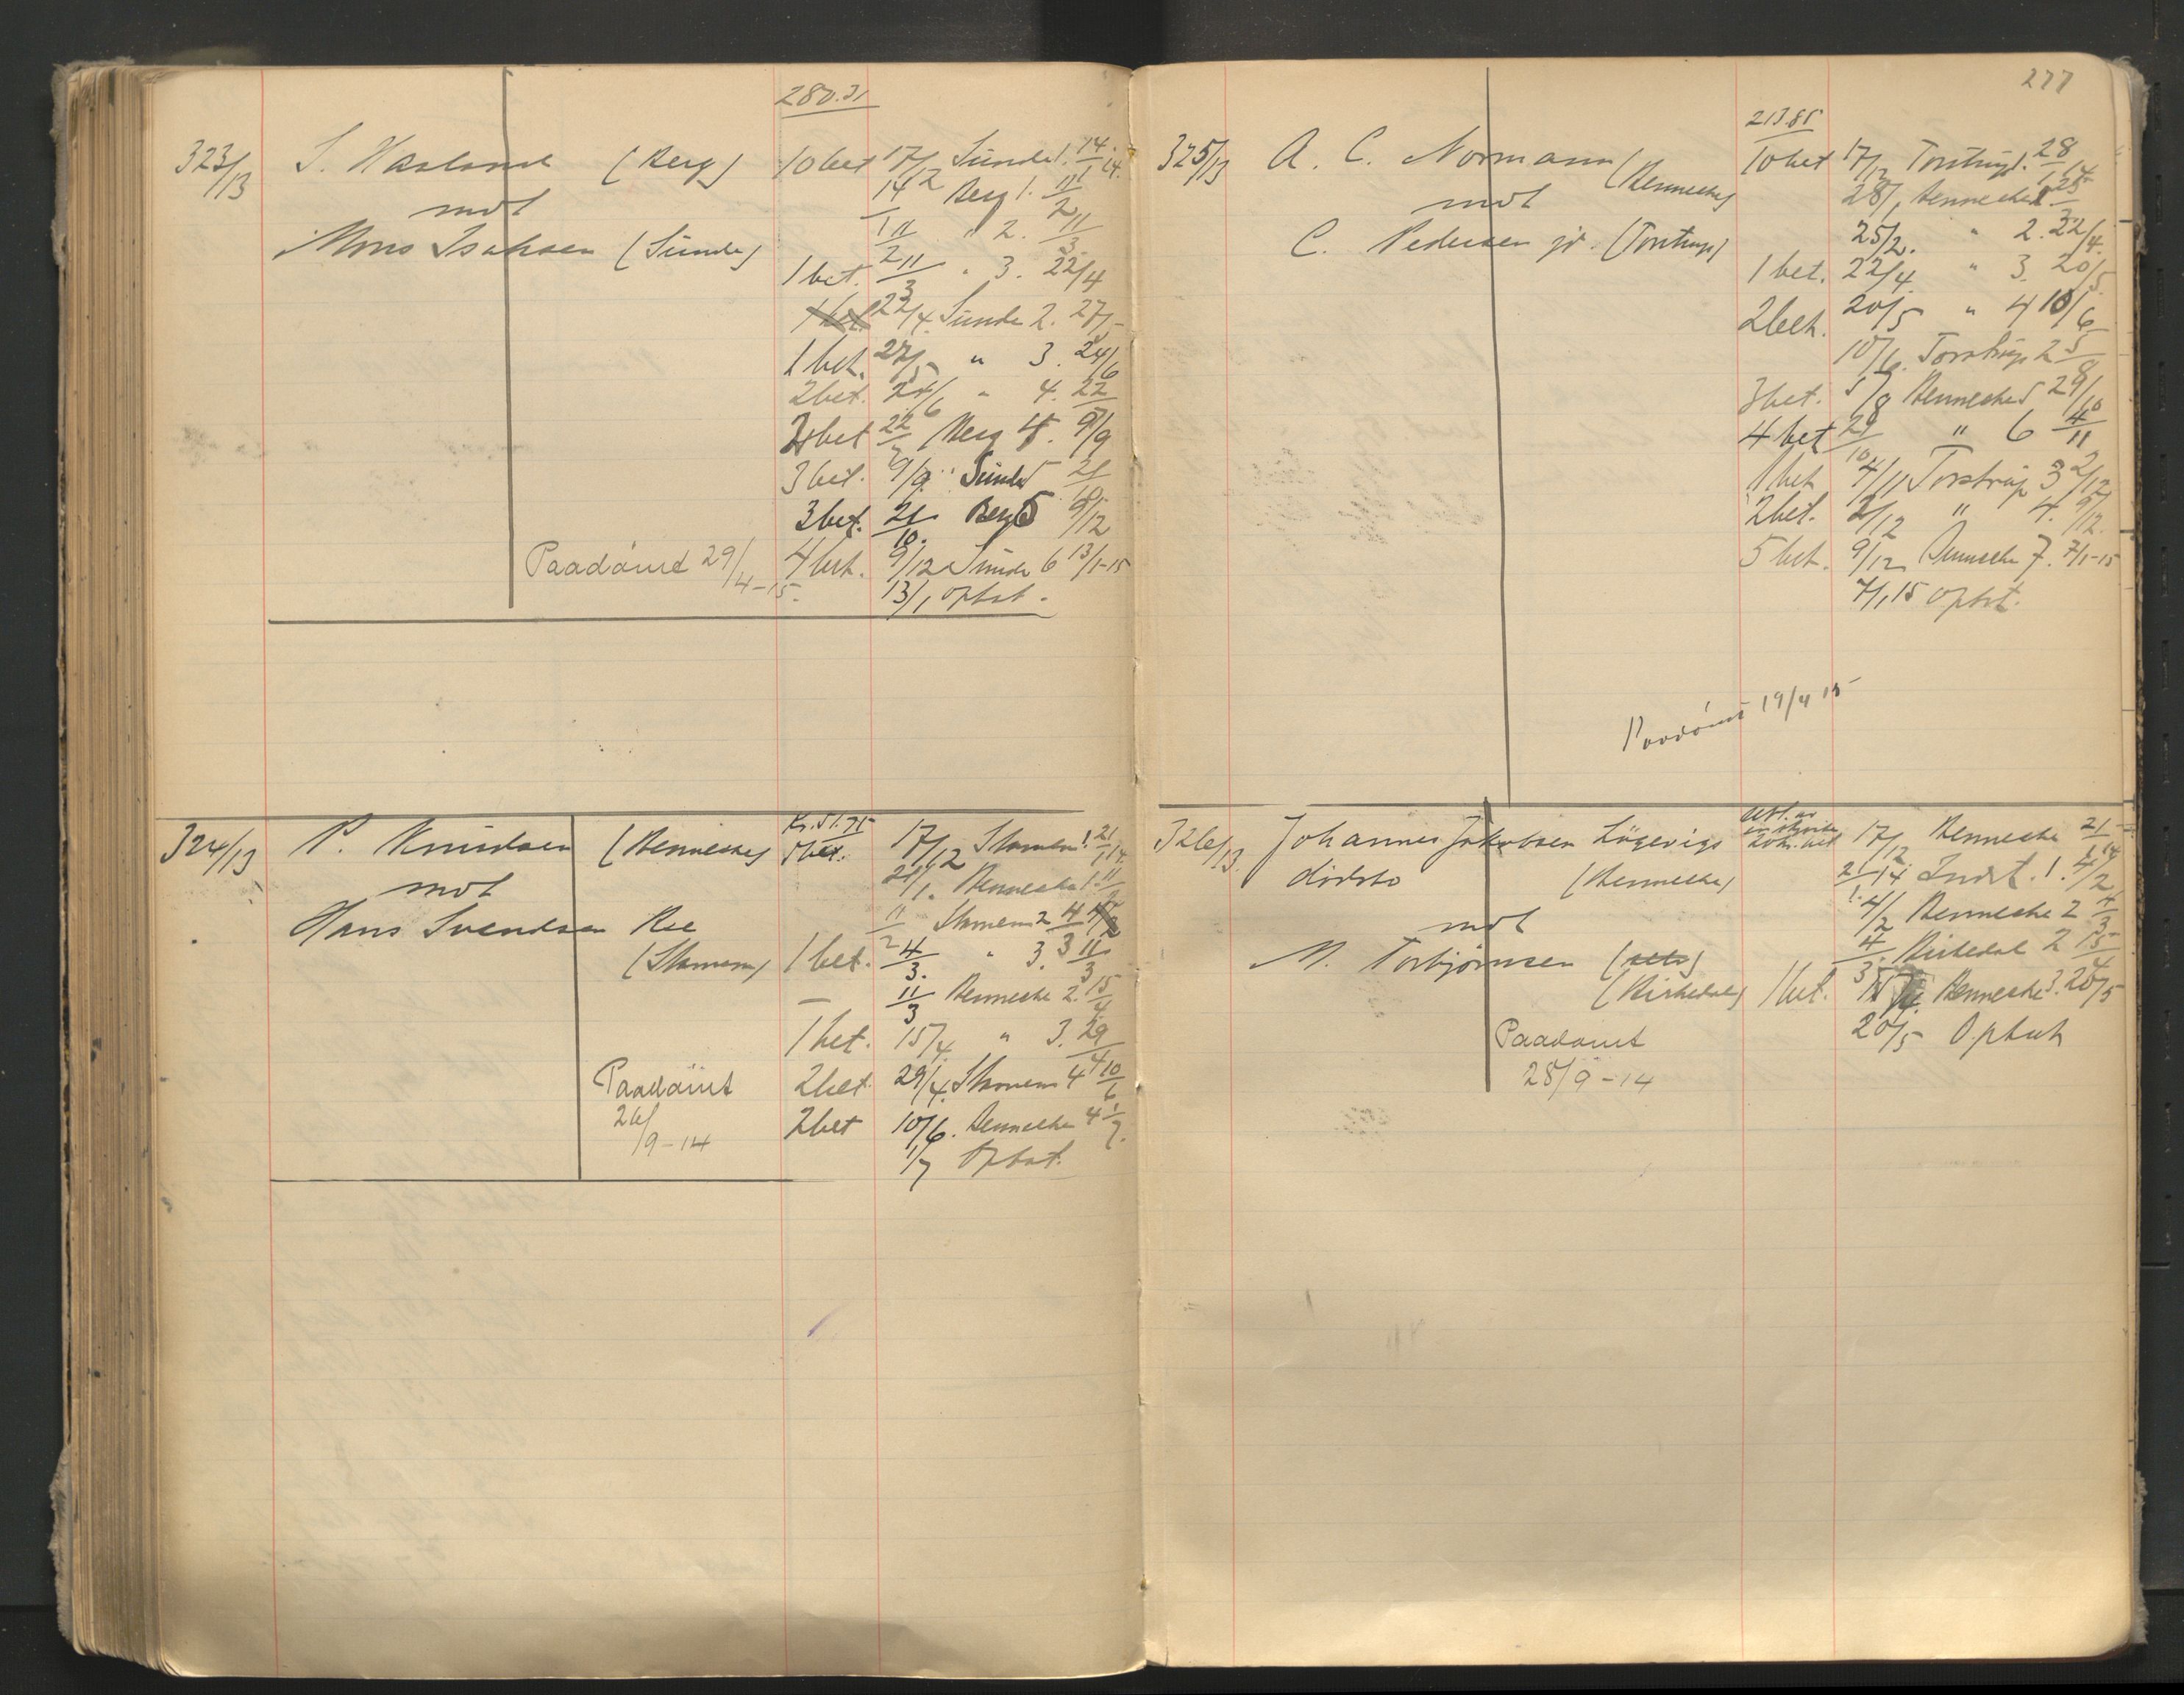 280.31
323/13 S. Hasland (Berg) 10 bet 17/12 Sunde 1. 14/1 14.
mot 14/1 Berg 1. 11/2
Mons Isaksen (Sunde) 11/2 " 2. 11/3
1 bet. 11/3 " 3. 22/4
22/4 Sunde 2. 27/5
1 bet. 27/5 " 3. 24/6
2 bet. 24/6 " 4. 22/7
bet 22/7 Berg 4. 9/9
3 bet. 9/9 Sunde 5 21/10
3 bet. 21/10. Berg 5 9/12
Paadömt 29/4-15. 4 bet. 9/12 Sunde 6 13/1-15
13/1 Optat.
324/13 P. Knudsen (Benneche) Kr. 51.75 17/12 Stamem 1. 21/1 14.
mot 21/1. Benneche 1. 11/2
Hans Svendsen Ree 11/2 Stamem 2 4/3
(Stamem) 1 bet. 4/3. " 3. 11/3
11/3 Benneche 2. 15/4
1 bet. 15/4. " 3. 29/4
Paadömt 2 bet. 29/4. Stamem 4 10/6
26/9-14 2 bet 10/6. Benneche 4 1/7.
1/7 Optat.
277
213.85
325/13 A. C. Normann (Benneche) 10 bet 17/12 Torstrup 1. 28/1 14
mot 28/1 Benneche 1. 25/2
C. Pedersen jr. (Torstrup) 25/2. " 2. 22/4.
1 bet. 22/4. " 3. 20/5.
2 bet. 20/5 " 4 10/6
10/6. Torstrup 2 5/8
3 bet. 5/8 Benneche 5 29/10
4 bet 29/10 " 6 4/11
1 bet 4/11 Torstrup 3 2/12
2 bet. 2/12 " 4. 9/12.
5 bet. 9/12 Benneche 7. 7/1-15
7/1 15 Optat.
Paadömt 19/4 15
326/13. Johannes Jakobsen Lögevigs 17/12 Benneche 21/1 14
dödsbo (Benneche) 21/1. 14 Indst. 1. 4/2
mot 4/2 Benneche 2 4/3
M. Torbjörnsen 4/3 Birkedal 2 15/4
(Birkedal) 1 bet. 15/4 Benneche 3. 20/5
Paadömt 20/5 Optat
28/9-14